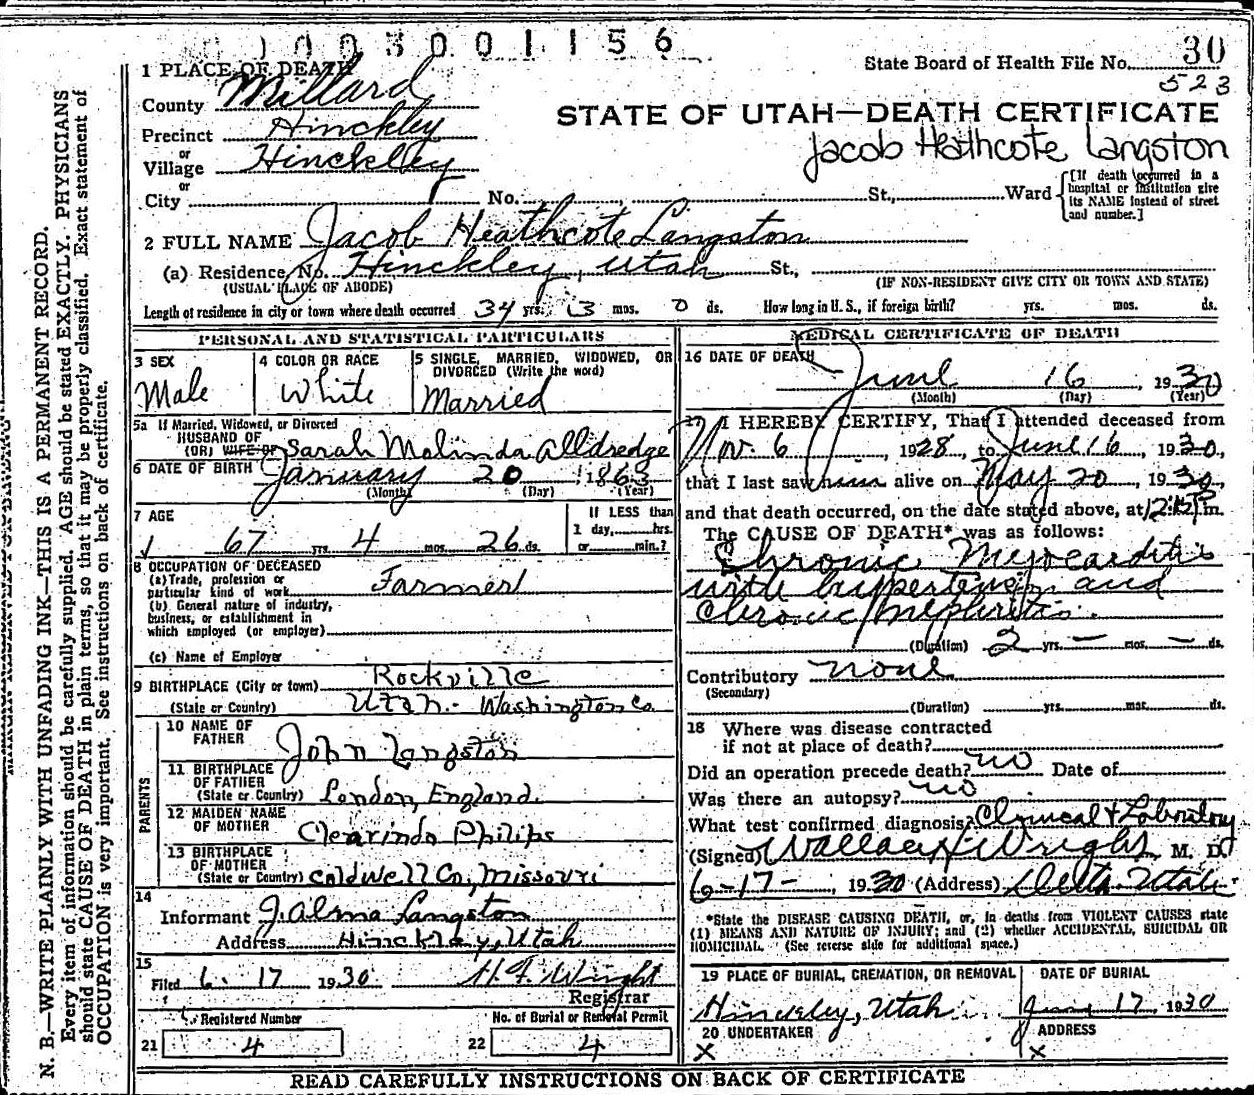 003001156
State Board of Health File No. 30
523
1 PLACE OF DEATH
County Millard
STATE OF UTAH—DEATH CERTIFICATE
Precinct Hinckley
Jacob Heathcote Langston
or
Village Hinckley
or
City No. St., Ward
[If death occurred in a hospital or institution give its NAME instead of street and number.]
2 FULL NAME Jacob Heathcote Langston
(a) Residence, No. Hinckley, Utah St.,
(USUAL PLACE OF ABODE) (IF NON-RESIDENT GIVE CITY OR TOWN AND STATE)
Length of residence in city or town where death occurred 34 yrs. 3 mos. 0 ds. How long in U. S., if foreign birth? yrs. mos. ds.
PERSONAL AND STATISTICAL PARTICULARS
3 SEX
Male
4 COLOR OR RACE
White
5 SINGLE, MARRIED, WIDOWED, OR
DIVORCED (Write the word)
Married
5a If Married, Widowed, or Divorced
HUSBAND OF
(OR) WIFE OF Sarah Malinda Alldredge
6 DATE OF BIRTH January 20 1863
(Month) (Day) (Year)
7 AGE
67 yrs. 4 mos. 26 ds.
If LESS than
1 day, hrs.
or min.?
8 OCCUPATION OF DECEASED
(a) Trade, profession or
particular kind of work Farmer
(b) General nature of industry,
business, or establishment in
which employed (or employer)
(c) Name of Employer
9 BIRTHPLACE (City or town) Rockville
(State or Country) Utah - Washington Co.
PARENTS
10 NAME OF
FATHER John Langston
11 BIRTHPLACE
OF FATHER
(State or Country) London, England.
12 MAIDEN NAME
OF MOTHER Clearinda Philips
13 BIRTHPLACE
OF MOTHER
(State or Country) Coldwell Co, Missouri
14
Informant J. Alma Langston
Address Hinckley, Utah
15
Filed 6 - 17 1930 H. F. Wright
Registrar
Registered Number No. of Burial or Removal Permit
21 4 22 4
MEDICAL CERTIFICATE OF DEATH
16 DATE OF DEATH
June 16, 1930
(Month) (Day) (Year)
17 I HEREBY CERTIFY, That I attended deceased from
Nov. 6, 1928, to June 16, 1930,
that I last saw him alive on May 20, 1930,
and that death occurred, on the date stated above, at 12:15 P m.
The CAUSE OF DEATH* was as follows:
Chronic Myocarditis
with hypertension and
chronic nephritis.
(Duration) 2 yrs. — mos. — ds.
Contributory none
(Secondary)
(Duration) yrs. mos. ds.
18 Where was disease contracted
if not at place of death?
Did an operation precede death? no Date of
Was there an autopsy? no
What test confirmed diagnosis? Clinical + Laboratory
(Signed) Wallace H Wright, M. D.
6-17-, 1930 (Address) Delta Utah
*State the DISEASE CAUSING DEATH, or, in deaths from VIOLENT CAUSES state
(1) MEANS AND NATURE OF INJURY; and (2) whether ACCIDENTAL, SUICIDAL OR
HOMICIDAL. (See reverse side for additional space.)
19 PLACE OF BURIAL, CREMATION, OR REMOVAL DATE OF BURIAL
Hinckley, Utah June 17, 1930
20 UNDERTAKER ADDRESS
X X
READ CAREFULLY INSTRUCTIONS ON BACK OF CERTIFICATE
N. B.—WRITE PLAINLY WITH UNFADING INK—THIS IS A PERMANENT RECORD.
Every item of information should be carefully supplied. AGE should be stated EXACTLY. PHYSICIANS
should state CAUSE OF DEATH in plain terms, so that it may be properly classified. Exact statement of
OCCUPATION is very important. See instructions on back of certificate.